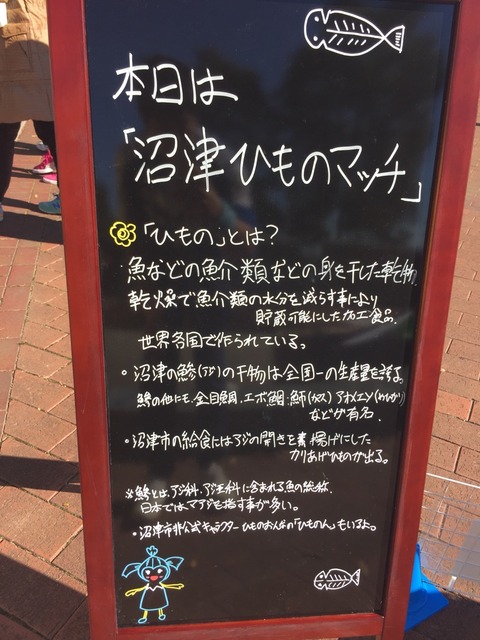 本日は
「沼津ひものマッチ」
「ひもの」とは？
魚などの魚介類などの身を干した乾物.
乾燥で魚介類の水分を減らす事により
貯蔵可能にした加工食品.
世界各国で作られている。
・沼津の鯵(アジ)の干物は全国一の生産量を誇る。
鯵の他にも、金目鯛、エボ鯛、鰤(カマス) アオメエソ(めひかり)
などが有名
・沼津市の給食にはアジの開きを素揚げにした
カリあげひものが出る。
※鯵とは、アジ科、アジ亜科に含まれる魚の総称.
日本ではマアジを指す事が多い。
・沼津市非公式キャラクター ひものおんなの「ひものん」もいるよ。